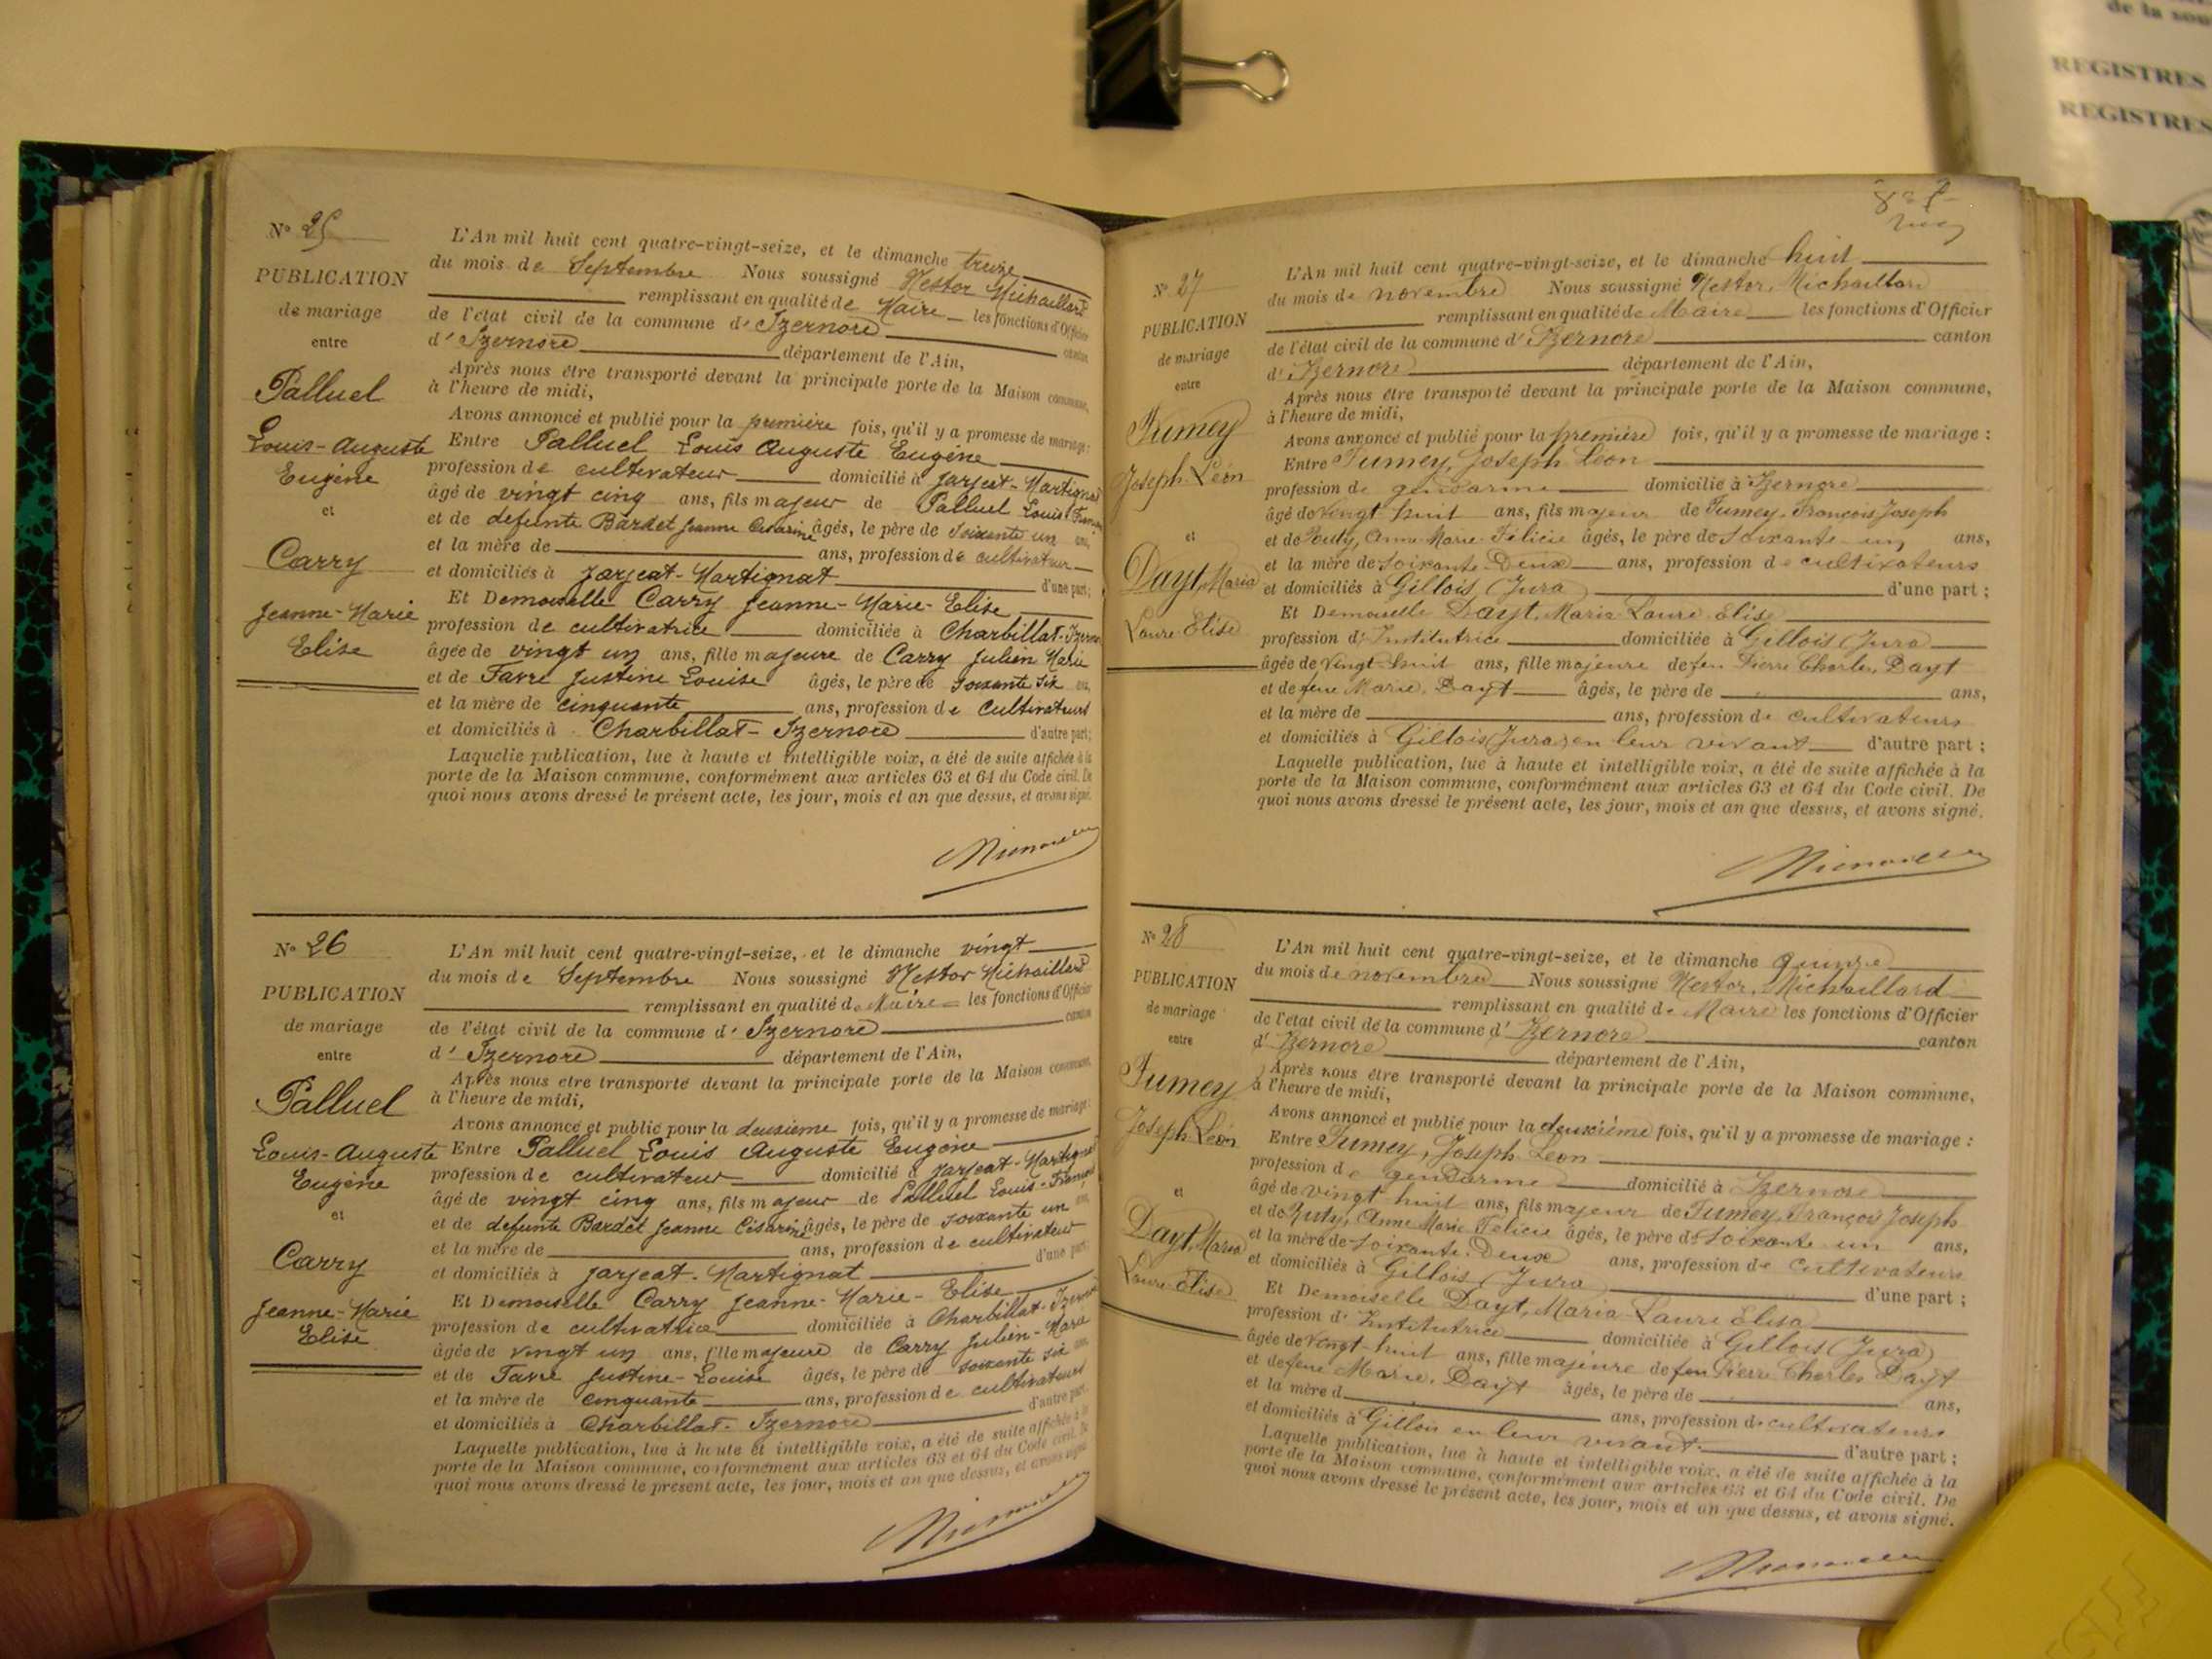 de la sou
REGISTRES
REGISTRES
N° 25
PUBLICATION
de mariage
entre
Palluel
Louis-Auguste
Eugène
et
Carry
Jeanne-Marie
Elise
L'An mil huit cent quatre-vingt-seize, et le dimanche treize
du mois de Septembre Nous soussigné Nestor Michaillard
remplissant en qualité de Maire les fonctions d'Officier
de l'état civil de la commune d'Izernore canton
d'Izernore département de l'Ain,
Après nous être transporté devant la principale porte de la Maison commune,
à l'heure de midi,
Avons annoncé et publié pour la première fois, qu'il y a promesse de mariage :
Entre Palluel Louis Auguste Eugène
profession de cultivateur domicilié à Jarjeat-Martignat
âgé de vingt cinq ans, fils majeur de Palluel Louis-
et de defunte Bardet Jeanne Césarine âgés, le père de soixante un ans,
et la mère de ans, profession de cultivateur
et domiciliés à Jarjeat-Martignat d'une part;
Et Demoiselle Carry Jeanne-Marie-Elise
profession de cultivatrice domiciliée à Charbillat-Izernore
âgée de vingt un ans, fille majeure de Carry Julien Marie
et de Favre Justine Louise âgés, le père de soixante six ans,
et la mère de cinquante ans, profession de cultivateurs
et domiciliés à Charbillat-Izernore d'autre part;
Laquelle publication, lue à haute et intelligible voix, a été de suite affichée à la
porte de la Maison commune, conformément aux articles 63 et 64 du Code civil. De
quoi nous avons dressé le présent acte, les jour, mois et an que dessus, et avons signé.
N° 26
PUBLICATION
de mariage
entre
Palluel
Louis-Auguste
Eugène
et
Carry
Jeanne-Marie
Elise
L'An mil huit cent quatre-vingt-seize, et le dimanche vingt
du mois de Septembre Nous soussigné Nestor Michaillard
remplissant en qualité de Maire les fonctions d'Officier
de l'état civil de la commune d'Izernore canton
d'Izernore département de l'Ain,
Après nous être transporté devant la principale porte de la Maison commune,
à l'heure de midi,
Avons annoncé et publié pour la deuxième fois, qu'il y a promesse de mariage :
Entre Palluel Louis Auguste Eugène
profession de cultivateur domicilié à Jarjeat-Martignat
âgé de vingt cinq ans, fils majeur de Palluel Louis-François
et de defunte Bardet Jeanne Césarine âgés, le père de soixante un ans,
et la mère de ans, profession de cultivateur
et domiciliés à Jarjeat-Martignat d'une part
Et Demoiselle Carry Jeanne-Marie-Elise
profession de cultivatrice domiciliée à Charbillat-Izernore
âgée de vingt un ans, fille majeure de Carry Julien-Marie
et de Favre Justine-Louise âgés, le père de soixante six ans,
et la mère de cinquante ans, profession de cultivateurs
et domiciliés à Charbillat-Izernore d'autre part
Laquelle publication, lue à haute et intelligible voix, a été de suite affichée à la
porte de la Maison commune, conformément aux articles 63 et 64 du Code civil. De
quoi nous avons dressé le présent acte, les jour, mois et an que dessus, et avons signé
N° 27
PUBLICATION
de mariage
entre
Fumey
Joseph-Léon
et
Dayt, Maria
Laure Elise
L'An mil huit cent quatre-vingt-seize, et le dimanche huit
du mois de novembre Nous soussigné Nestor, Michaillard
remplissant en qualité de Maire les fonctions d'Officier
de l'état civil de la commune d'Izernore canton
d'Izernore département de l'Ain,
Après nous être transporté devant la principale porte de la Maison commune,
à l'heure de midi,
Avons annoncé et publié pour la première fois, qu'il y a promesse de mariage :
Entre Fumey, Joseph Léon
profession de gendarme domicilié à Izernore
âgé de vingt huit ans, fils majeur de Fumey, François Joseph
et de Ruty, Anne Marie Félicie âgés, le père de soixante un ans,
et la mère de soixante-deux ans, profession de cultivateurs
et domiciliés à Gillois (Jura) d'une part ;
Et Demoiselle Dayt, Maria Laure Elise
profession d'Institutrice domiciliée à Gillois (Jura)
âgée de vingt-huit ans, fille majeure de feu Pierre Charles Dayt
et de feue Marie, Dayt âgés, le père de ans,
et la mère de ans, profession de cultivateurs
et domiciliés à Gillois (Jura) en leur vivant d'autre part ;
Laquelle publication, lue à haute et intelligible voix, a été de suite affichée à la
porte de la Maison commune, conformément aux articles 63 et 64 du Code civil. De
quoi nous avons dressé le présent acte, les jour, mois et an que dessus, et avons signé.
N° 28
PUBLICATION
de mariage
entre
Fumey
Joseph Léon
et
Dayt, Maria
Laure Elise
L'An mil huit cent quatre-vingt-seize, et le dimanche quinze
du mois de novembre Nous soussigné Nestor, Michaillard
remplissant en qualité de Maire les fonctions d'Officier
de l'état civil de la commune d'Izernore canton
d'Izernore département de l'Ain,
Après nous être transporté devant la principale porte de la Maison commune,
à l'heure de midi,
Avons annoncé et publié pour la deuxième fois, qu'il y a promesse de mariage :
Entre Fumey, Joseph Léon
profession de gendarme domicilié à Izernore
âgé de vingt huit ans, fils majeur de Fumey, François Joseph
et de Ruty, Anne Marie Félicie âgés, le père de soixante un ans,
et la mère de soixante-Deux ans, profession de cultivateurs
et domiciliés à Gillois (Jura) d'une part ;
Et Demoiselle Dayt, Maria-Laure Elisa
profession d'Institutrice domiciliée à Gillois (Jura)
âgée de vingt-huit ans, fille majeure de feu Pierre Charles Dayt
et de feue Marie, Dayt âgés, le père de ans,
et la mère d ans, profession de cultivateurs
et domiciliés à Gillois en leur vivant d'autre part ;
Laquelle publication, lue à haute et intelligible voix, a été de suite affichée à la
porte de la Maison commune, conformément aux articles 63 et 64 du Code civil. De
quoi nous avons dressé le présent acte, les jour, mois et an que dessus, et avons signé.